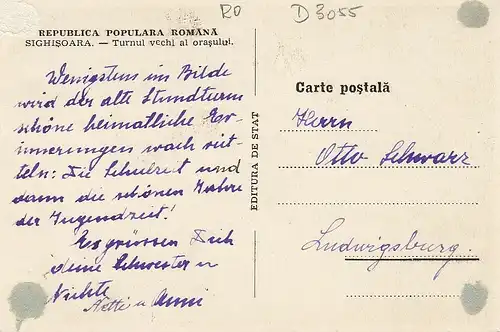 RO
D 3055
REPUBLICA POPULARA ROMÂNĂ
SIGHIŞOARA. — Turnul vechi al oraşului.
Wenigstens im Bilde
wird der alte Stundturm
schöne heimatliche Er-
innerungen wach rüt-
teln: Die Schulzeit und
dann die schönen Jahre
der Jugendzeit!
Es grüssen Dich
deine Schwester u
Nichte
Netti u Anni
EDITURA DE STAT
Carte poştală
Herrn
Otto Schwarz
Ludwigsburg.